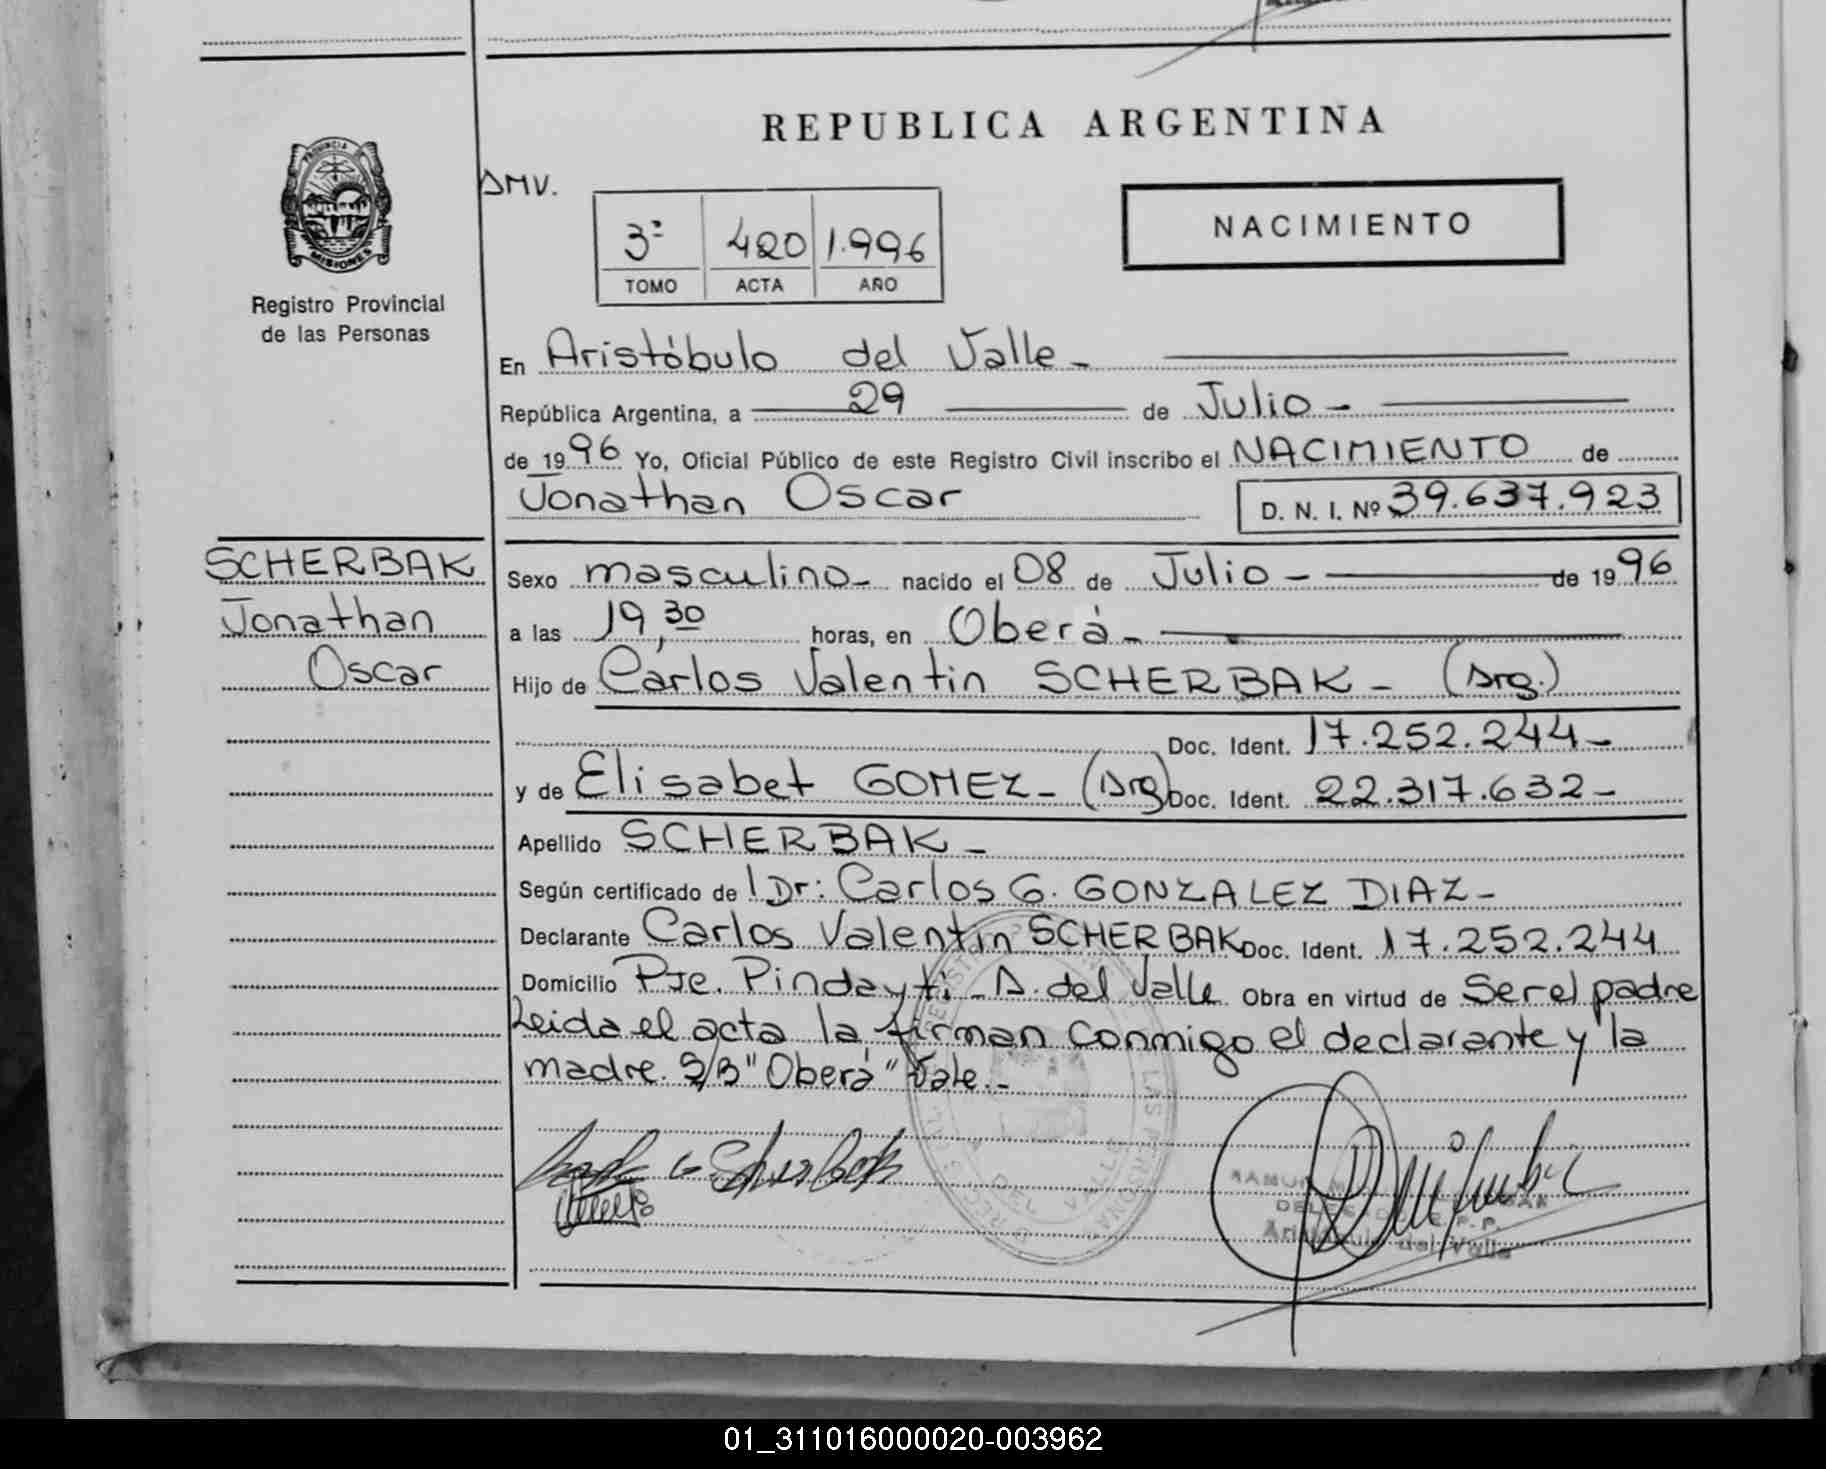 REPUBLICA ARGENTINA
PROVINCIA DE
MISIONES
Registro Provincial
de las Personas
AMV.
NACIMIENTO
3º 420 1.996
TOMO ACTA AÑO
En Aristóbulo del Valle -
República Argentina, a 29 de Julio -
de 1996 Yo, Oficial Público de este Registro Civil inscribo el NACIMIENTO de
Jonathan Oscar D. N. I. Nº 39.637.923
SCHERBAK
Jonathan
Oscar
Sexo masculino - nacido el 08 de Julio - de 1996
a las 19,30 horas, en Oberá -
Hijo de Carlos Valentin SCHERBAK - (Arg.)
Doc. Ident. 17.252.244 -
y de Elisabet GOMEZ - (Arg) Doc. Ident. 22.317.632 -
Apellido SCHERBAK -
Según certificado de Dr: Carlos G. GONZALEZ DIAZ -
Declarante Carlos Valentin SCHERBAK Doc. Ident. 17.252.244
Domicilio Pje. Pindayti - A. del Valle Obra en virtud de Ser el padre
Leida el acta la firman conmigo el declarante y la
madre. S/B "Oberá" Vale. -
Aristóbulo del Valle
01_311016000020-003962